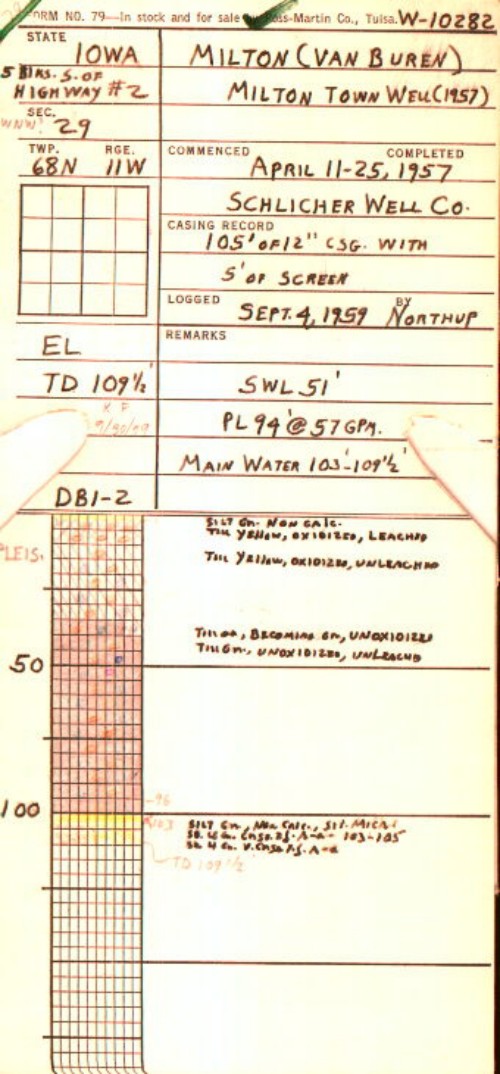 FORM NO. 79—In stock and for sale by Ross-Martin Co., Tulsa. W-10282
STATE
IOWA
MILTON (VAN BUREN)
5 BLKS. S. OF
HIGHWAY #2
MILTON TOWN WELL (1957)
SEC.
WNW 29
TWP. RGE.
68N 11W
COMMENCED COMPLETED
APRIL 11-25, 1957
SCHLICHER WELL CO.
CASING RECORD
105' OF 12" CSG. WITH
5' OF SCREEN
LOGGED BY
SEPT. 4, 1959 NORTHUP
EL
REMARKS
TD 109½'
SWL 51'
PL 94' @ 57 GPM.
MAIN WATER 103'-109½'
DB1-2
SILT Gn. NON CALC.
TILL YELLOW, OXIDIZED, LEACHED
PLEIS.
TILL YELLOW, OXIDIZED, UNLEACHED
TILL BECOMING Gn, UNOXIDIZED
TILL Gn., UNOXIDIZED, UNLEACHED
50
-96
100
103
SILT Gn., NON CALC., SIL. MICA.
103-105
TD 109½